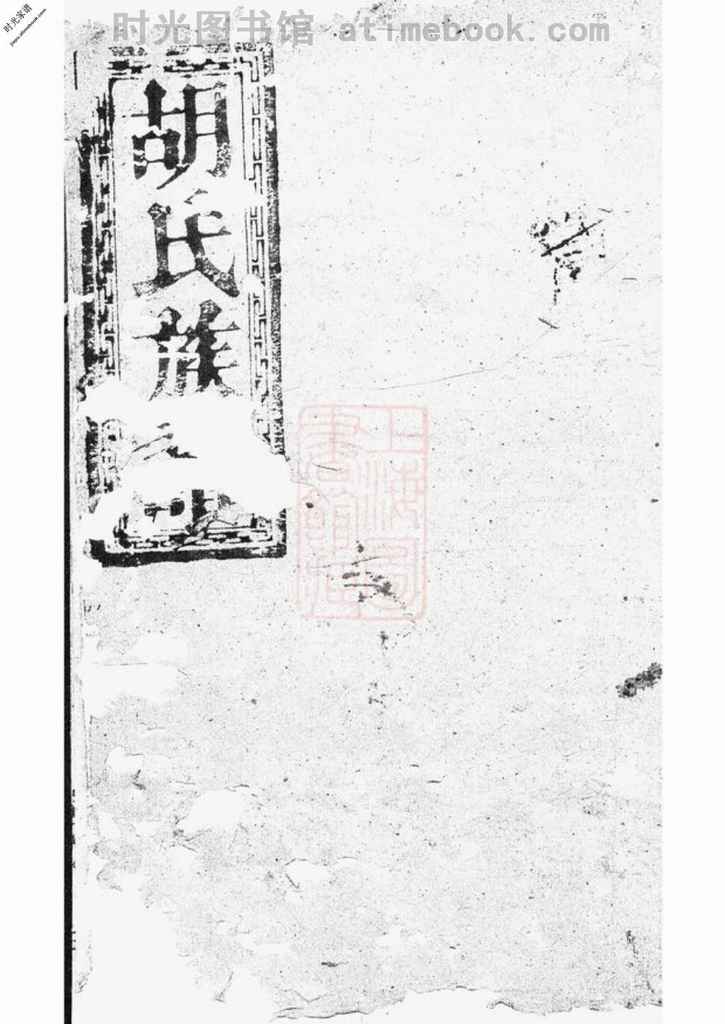 时光图书馆 atimebook.com
时光家谱
胡氏族
上海圖書館藏